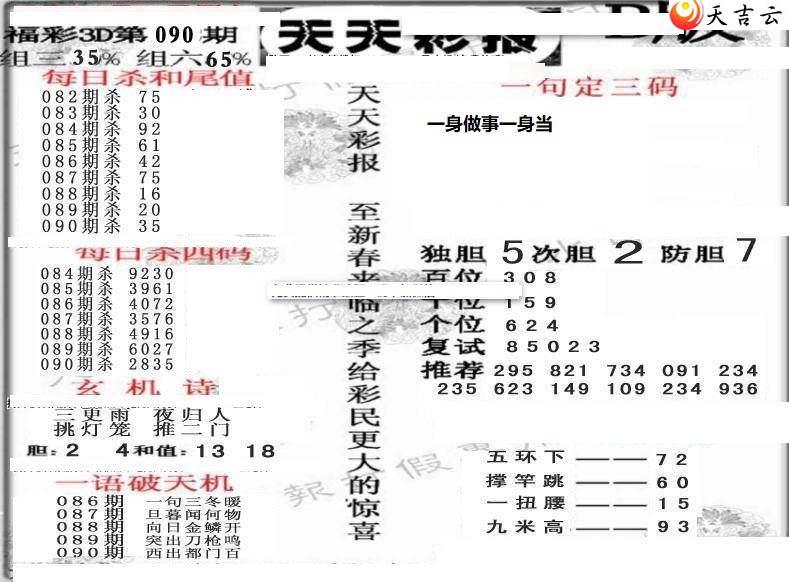 天吉云
福彩3D第090期
天天彩报
组三35% 组六65%
每日杀和尾值
082期杀 75
083期杀 30
084期杀 92
085期杀 61
086期杀 42
087期杀 75
088期杀 16
089期杀 20
090期杀 35
每日杀四码
084期杀 9230
085期杀 3961
086期杀 4072
087期杀 3576
088期杀 4916
089期杀 6027
090期杀 2835
玄机诗
三更雨 夜归人
挑灯笼 推二门
胆:2 4和值:13 18
一语破天机
086期 一句三冬暖
087期 旦暮闻何物
088期 向日金鳞开
089期 突出刀枪鸣
090期 西出都门百
天天彩报 至新春来临之季给彩民更大的惊喜
一句定三码
一身做事一身当
独胆5次胆2防胆7
百位 308
十位 159
个位 624
复试 85023
推荐 295 821 734 091 234
235 623 149 109 234 936
五环下———72
撑竿跳———60
一扭腰———15
九米高———93